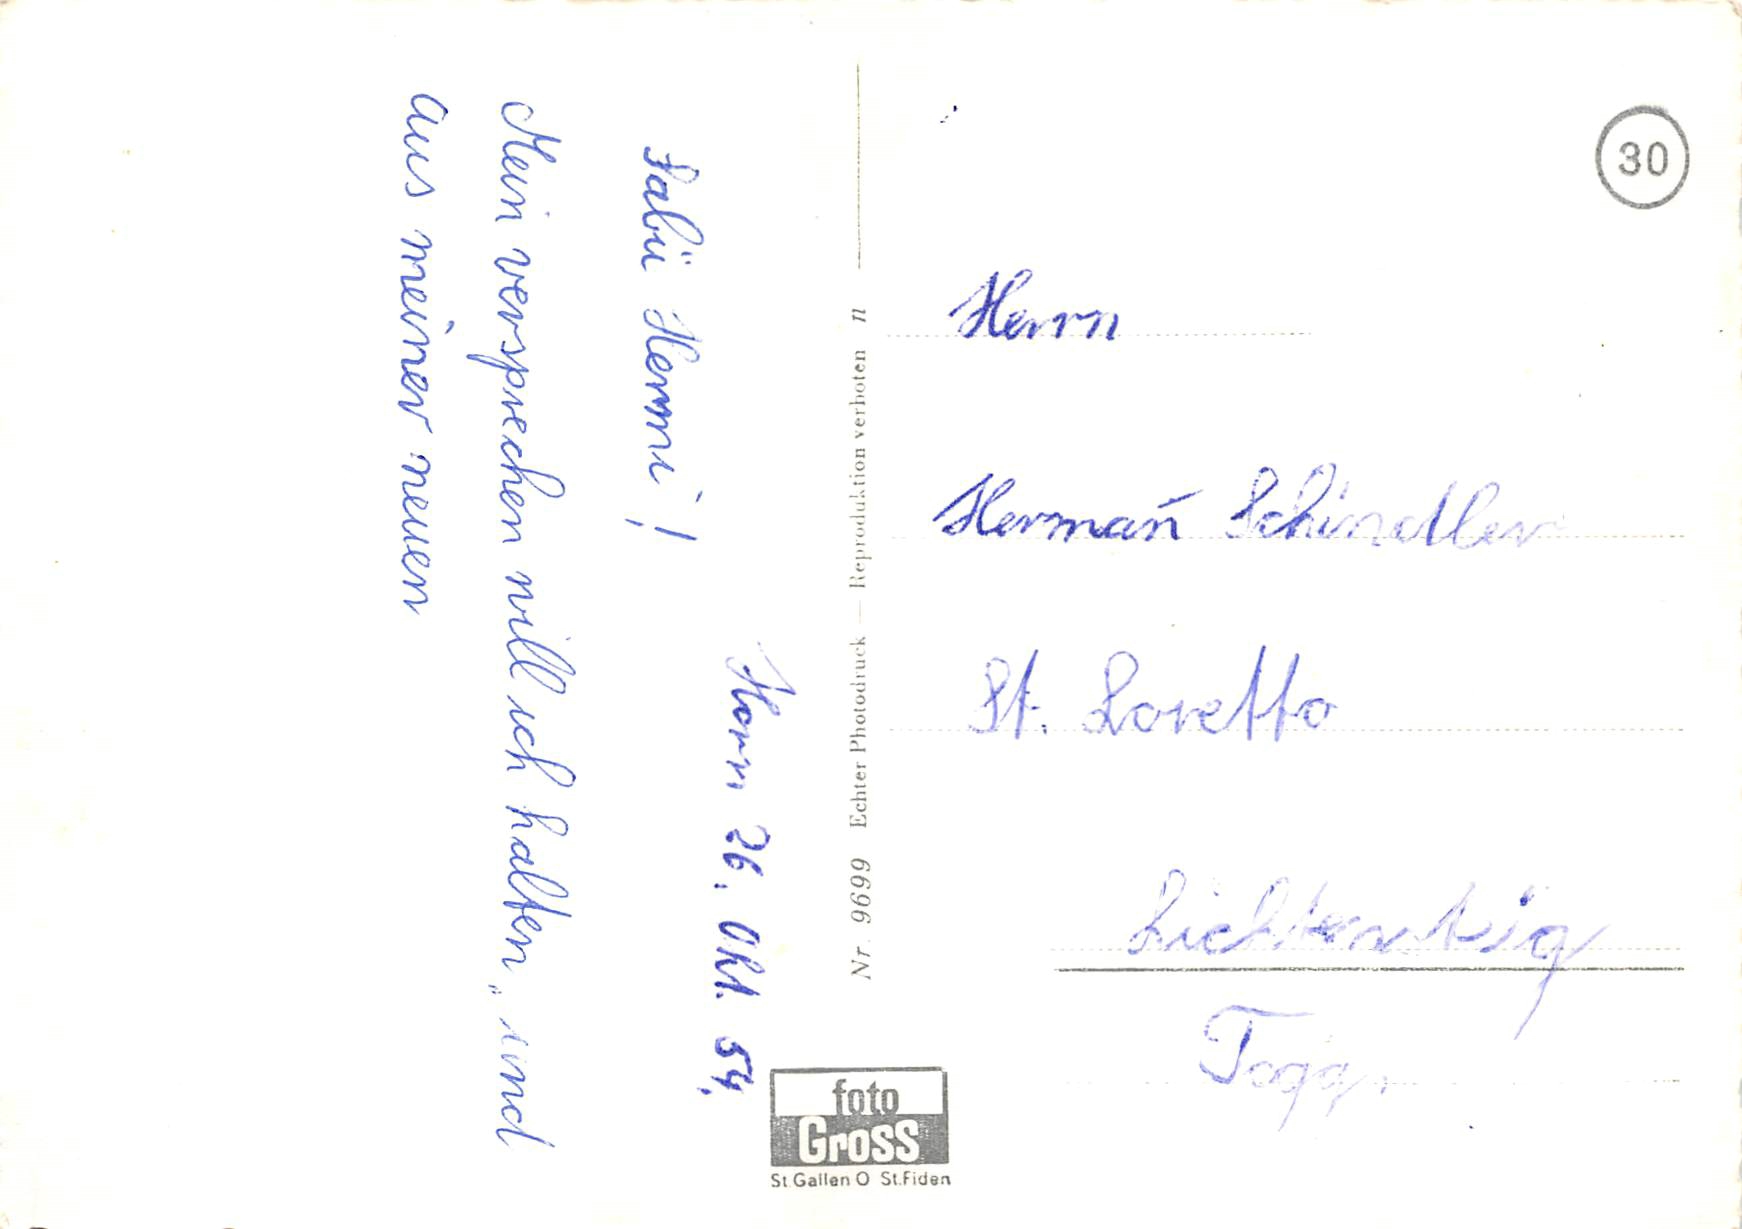 Horn 26. Okt. 54.
Sabü Hermi!
Mein versprechen will ich halten, und
aus meiner neuen
Nr. 9699 Echter Photodruck — Reproduktion verboten n
30
Herrn
Hermañ Schindler
St. Loretto
Lichtensteig
Togg.
foto
Gross
St.Gallen O St.Fiden